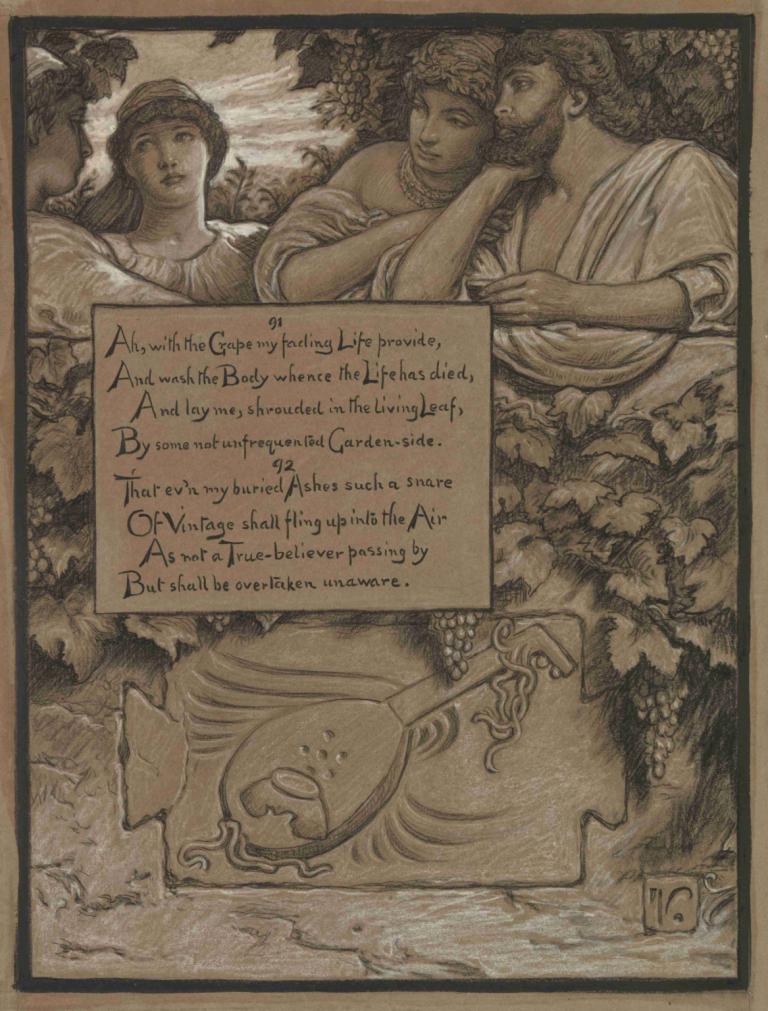 91
Ah, with the Grape my fading Life provide,
And wash the Body whence the Life has died,
And lay me, shrouded in the living Leaf,
By some not unfrequented Garden-side.
92
That ev'n my buried Ashes such a snare
Of Vintage shall fling up into the Air
As not a True-believer passing by
But shall be overtaken unaware.